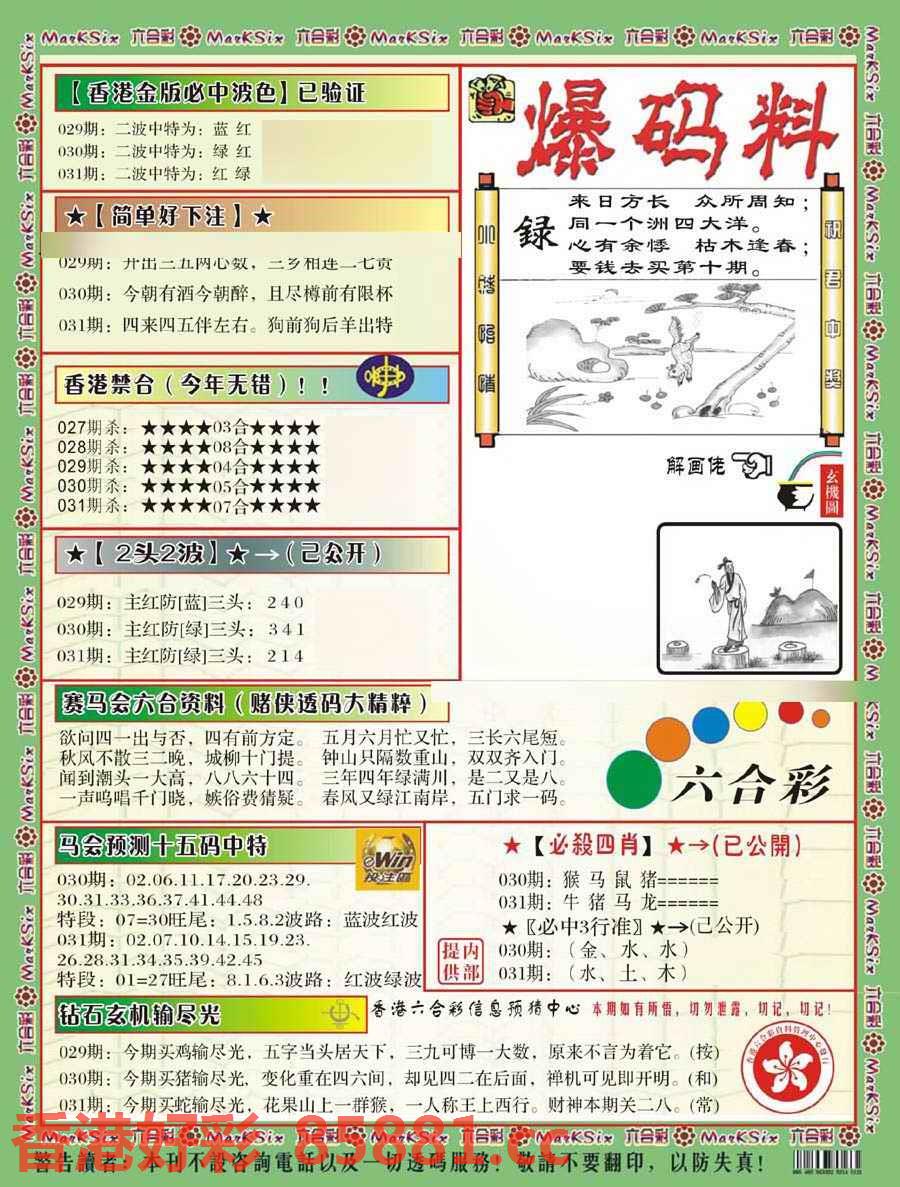 MarKSix 六合彩 MarKSix 六合彩 MarKSix 六合彩 MarKSix 六合彩 MarKSix 六合彩
【香港金版必中波色】已验证
029期：二波中特为：蓝 红
030期：二波中特为：绿 红
031期：二波中特为：红 绿
★【简单好下注】★
029期：开出三五两心数，三乡相连二七贵
030期：今朝有酒今朝醉，且尽樽前有限杯
031期：四来四五伴左右。狗前狗后羊出特
香港禁合（今年无错）！！
027期杀：★★★★03合★★★★
028期杀：★★★★08合★★★★
029期杀：★★★★04合★★★★
030期杀：★★★★05合★★★★
031期杀：★★★★07合★★★★
★【 2头2波】★→（已公开）
029期：主红防[蓝]三头：2 4 0
030期：主红防[绿]三头：3 4 1
031期：主红防[绿]三头：2 1 4
爆码料
録
来日方长 众所周知；
同一个洲四大洋。
心有余悸 枯木逢春；
要钱去买第十期。
祝君中奖
解画佬
玄機圖
赛马会六合资料（赌侠透码大精粹）
欲问四一出与否，四有前方定。 五月六月忙又忙，三长六尾短。
秋风不散三二晚，城柳十门提。 钟山只隔数重山，双双齐入门。
闻到潮头一大高，八八六十四。 三年四年绿满川，是二又是八。
一声鸣唱千门晓，嫉俗费猜疑。 春风又绿江南岸，五门求一码。
六合彩
马会预测十五码中特
eWin
投注區
030期：02.06.11.17.20.23.29.
30.31.33.36.37.41.44.48
特段：07=30旺尾：1.5.8.2波路：蓝波红波
031期：02.07.10.14.15.19.23.
26.28.31.34.35.39.42.45
特段：01=27旺尾：8.1.6.3波路：红波绿波
★【必殺四肖】★→(已公開)
030期：猴 马 鼠 猪======
031期：牛 猪 马 龙======
★〖必中3行准〗★→(已公开)
030期：（金、水、水）
031期：（水、土、木）
提内
供部
钻石玄机输尽光
香港六合彩信息预猜中心 本期如有所悟，切勿泄露，切记，切记！
029期：今期买鸡输尽光，五字当头居天下，三九可博一大数，原来不言为着它。(按)
030期：今期买猪输尽光，变化重在四六间，却见四二在后面，禅机可见即开明。(和)
031期：今期买蛇输尽光，花果山上一群猴，一人称王上西行。财神本期关二八。(常)
香港好彩 85881.cc
MarKSix 六合彩 MarKSix 六合彩 MarKSix 六合彩 MarKSix 六合彩 MarKSix 六合彩
警告讀者：本刊不設咨詢電話以及一切透碼服務！敬請不要翻印，以防失真！